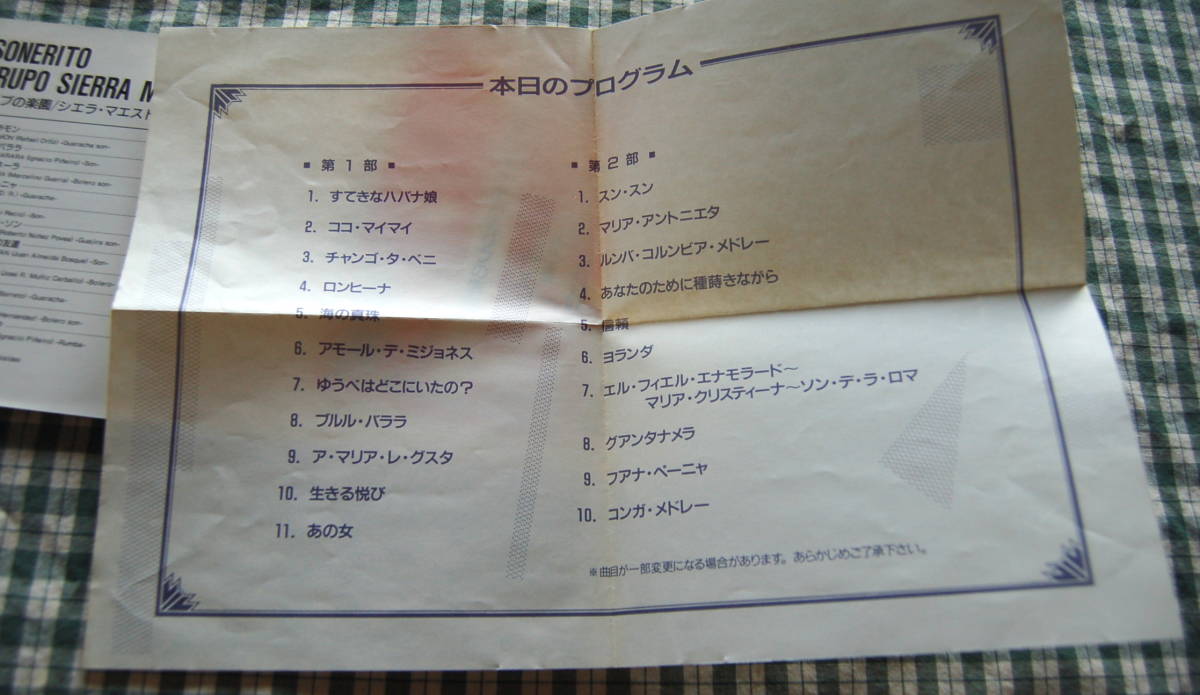 SONERITO
RUPO SIERRA M
ブの楽園/シエラ・マエスト
本日のプログラム
■ 第1部 ■
1. すてきなハバナ娘
2. ココ・マイマイ
3. チャンゴ・タ・ベニ
4. ロンヒーナ
5. 海の真珠
6. アモール・デ・ミジョネス
7. ゆうべはどこにいたの?
8. ブルル・バララ
9. ア・マリア・レ・グスタ
10. 生きる悦び
11. あの女
■ 第2部 ■
1. スン・スン
2. マリア・アントニエタ
3. ルンバ・コルンビア・メドレー
4. あなたのために種蒔きながら
5. 信頼
6. ヨランダ
7. エル・フィエル・エナモラード〜
マリア・クリスティーナ〜ソン・デ・ラ・ロマ
8. グアンタナメラ
9. フアナ・ペーニャ
10. コンガ・メドレー
※曲目が一部変更になる場合があります。あらかじめご了承下さい。